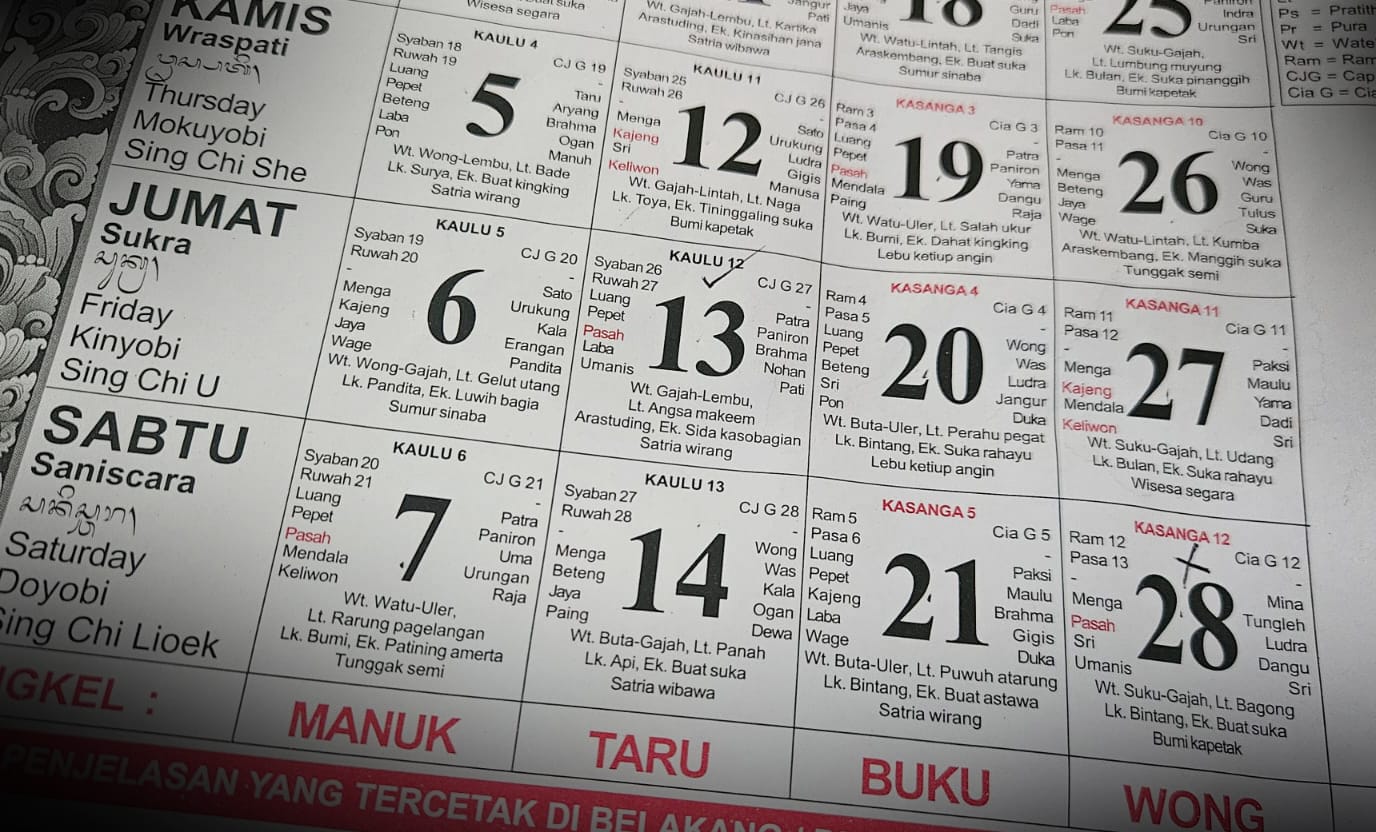 KAMIS
Wraspati
Thursday
Mokuyobi
Sing Chi She
Wisesa segara
KAULU 4
Syaban 18
Ruwah 19
CJ G 19
-
Luang
Pepet
Beteng
Laba
Pon
5
Taru
Aryang
Brahma
Ogan
Manuh
Wt. Wong-Lembu, Lt. Bade
Lk. Surya, Ek. Buat kingking
Satria wirang
Wt. Gajah-Lembu, Lt. Kartika
Arastuding, Ek. Kinasihan jana
Satria wibawa
Pati
KAULU 11
Syaban 25
Ruwah 26
CJ G 26
-
-
Menga
Kajeng
Sri
Keliwon
12
Sato
Urukung
Ludra
Gigis
Manusa
Wt. Gajah-Lintah, Lt. Naga
Lk. Toya, Ek. Tininggaling suka
Bumi kapetak
Jaya
Umanis
18
Guru
Dadi
Suka
Wt. Watu-Lintah, Lt. Tangis
Araskembang, Ek. Buat suka
Sumur sinaba
KASANGA 3
Ram 3
Pasa 4
Cia G 3
-
Luang
Pepet
Pasah
Mendala
Paing
19
Patra
Paniron
Yama
Dangu
Raja
Wt. Watu-Uler, Lt. Salah ukur
Lk. Bumi, Ek. Dahat kingking
Lebu ketiup angin
Pasah
Laba
Pon
25
Indra
Urungan
Sri
Wt. Suku-Gajah,
Lt. Lumbung muyung
Lk. Bulan, Ek. Suka pinanggih
Bumi kapetak
KASANGA 10
Ram 10
Pasa 11
Cia G 10
-
-
Menga
Beteng
Jaya
Wage
26
Wong
Was
Guru
Tulus
Suka
Wt. Watu-Lintah, Lt. Kumba
Araskembang, Ek. Manggih suka
Tunggak semi
Ps = Pratith
Pr = Pura
Wt = Wate
Ram = Ram
CJG = Cap
Cia G = Cia
JUMAT
Sukra
Friday
Kinyobi
Sing Chi U
KAULU 5
Syaban 19
Ruwah 20
CJ G 20
-
-
Menga
Kajeng
Jaya
Wage
6
Sato
Urukung
Kala
Erangan
Pandita
Wt. Wong-Gajah, Lt. Gelut utang
Lk. Pandita, Ek. Luwih bagia
Sumur sinaba
KAULU 12
Syaban 26
Ruwah 27
CJ G 27
-
Luang
Pepet
Pasah
Laba
Umanis
13
Patra
Paniron
Brahma
Nohan
Pati
Wt. Gajah-Lembu,
Lt. Angsa makeem
Arastuding, Ek. Sida kasobagian
Satria wirang
KASANGA 4
Ram 4
Pasa 5
Cia G 4
-
Luang
Pepet
Beteng
Sri
Pon
20
Wong
Was
Ludra
Jangur
Duka
Wt. Buta-Uler, Lt. Perahu pegat
Lk. Bintang, Ek. Suka rahayu
Lebu ketiup angin
KASANGA 11
Ram 11
Pasa 12
Cia G 11
-
-
Menga
Kajeng
Mendala
Keliwon
27
Paksi
Maulu
Yama
Dadi
Sri
Wt. Suku-Gajah, Lt. Udang
Lk. Bulan, Ek. Suka rahayu
Wisesa segara
SABTU
Saniscara
Saturday
Doyobi
Sing Chi Lioek
KAULU 6
Syaban 20
Ruwah 21
CJ G 21
-
Luang
Pepet
Pasah
Mendala
Keliwon
7
Patra
Paniron
Uma
Urungan
Raja
Wt. Watu-Uler,
Lt. Rarung pagelangan
Lk. Bumi, Ek. Patining amerta
Tunggak semi
KAULU 13
Syaban 27
Ruwah 28
CJ G 28
-
-
Menga
Beteng
Jaya
Paing
14
Wong
Was
Kala
Ogan
Dewa
Wt. Buta-Gajah, Lt. Panah
Lk. Api, Ek. Buat suka
Satria wibawa
KASANGA 5
Ram 5
Pasa 6
Cia G 5
-
Luang
Pepet
Kajeng
Laba
Wage
21
Paksi
Maulu
Brahma
Gigis
Duka
Wt. Buta-Uler, Lt. Puwuh atarung
Lk. Bintang, Ek. Buat astawa
Satria wirang
KASANGA 12
Ram 12
Pasa 13
Cia G 12
-
-
Menga
Pasah
Sri
Umanis
28
Mina
Tungleh
Ludra
Dangu
Sri
Wt. Suku-Gajah, Lt. Bagong
Lk. Bintang, Ek. Buat suka
Bumi kapetak
NGKEL :
MANUK
TARU
BUKU
WONG
PENJELASAN YANG TERCETAK DI BELAKANG